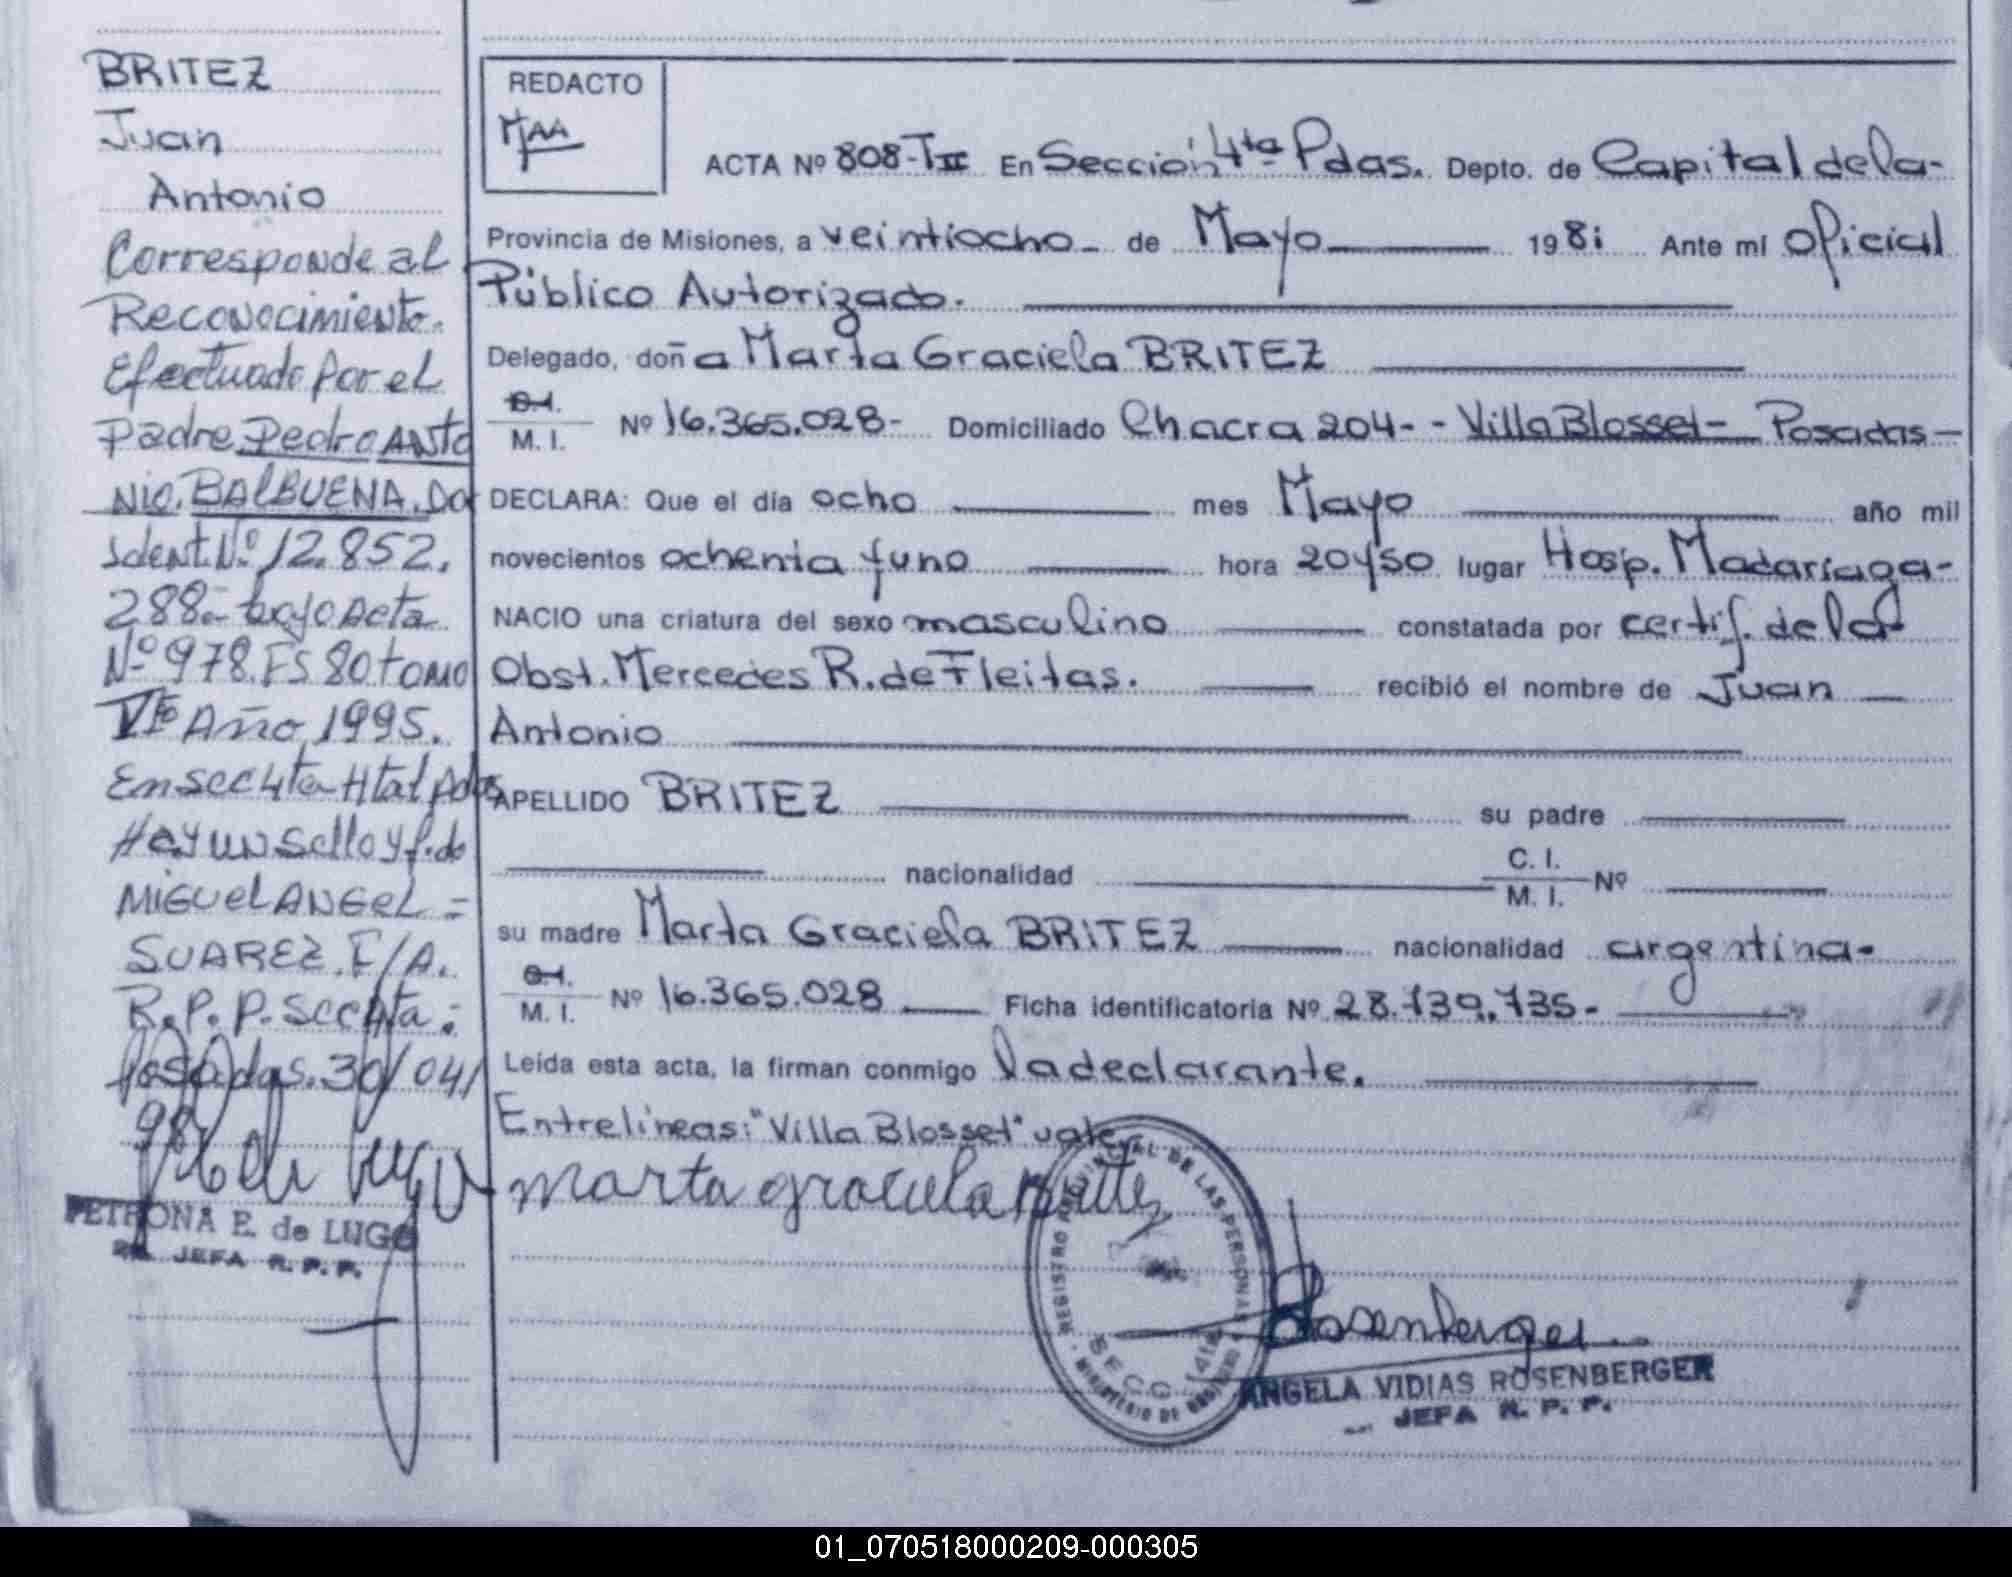 BRITEZ
Juan
Antonio
Corresponde al
Reconocimiento.
Efectuado Por el
Padre Pedro Anto
Nio. BALBUENA. Do
Ident. Nº 12.852.
288.- bajo Acta
Nº 978. Fs 80 tomo
VIº Año 1995.
En secc 4ta Htal Pdas
Hay un sello y f. do
MIGUEL ANGEL =
SUAREZ. F/A.
R. P. P. Secc 4ta.-
Posadas. 30/04/
98
PETRONA E. de LUGO
JEFA R. P. P.
REDACTO
MAA
ACTA Nº 808-TII En Sección 4ta Pdas. Depto. de Capital de la-
Provincia de Misiones, a veintiocho- de Mayo 1981 Ante mí oficial
Público Autorizado.
Delegado, doña Marta Graciela BRITEZ
C.I. M. I. Nº 16.365.028- Domiciliado Chacra 204-- Villa Blosset- Posadas-
DECLARA: Que el día ocho mes Mayo año mil
novecientos ochenta y uno hora 20y50 lugar Hosp. Madariaga-
NACIO una criatura del sexo masculino constatada por certif. de la
Obst. Mercedes R. de Fleitas. recibió el nombre de Juan
Antonio
APELLIDO BRITEZ su padre
nacionalidad C. I. M. I. Nº
su madre Marta Graciela BRITEZ nacionalidad argentina-
C.I. M. I. Nº 16.365.028 Ficha identificatoria Nº 28.139.735-
Leída esta acta, la firman conmigo la declarante.
Entrelineas: "Villa Blosset" vale
marta graciela Britez
REGISTRO PROVINCIAL DE LAS PERSONAS
MINISTERIO DE GOBIERNO
SECC. 4ta
Rosenberger
ANGELA VIDIAS ROSENBERGER
JEFA R. P. P.
01_070518000209-000305